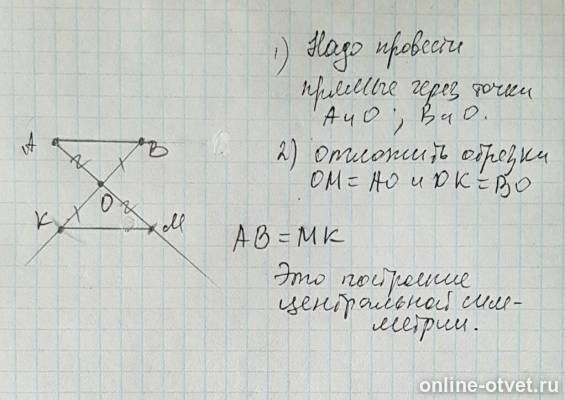 1) Надо провести
прямые через точки
А и О ; В и О.
2) отложить отрезки
ОМ = АО и ОК = ВО
АВ = МК
Это построение
центральной сим-
метрии.
А
В
О
К
М
online-otvet.ru